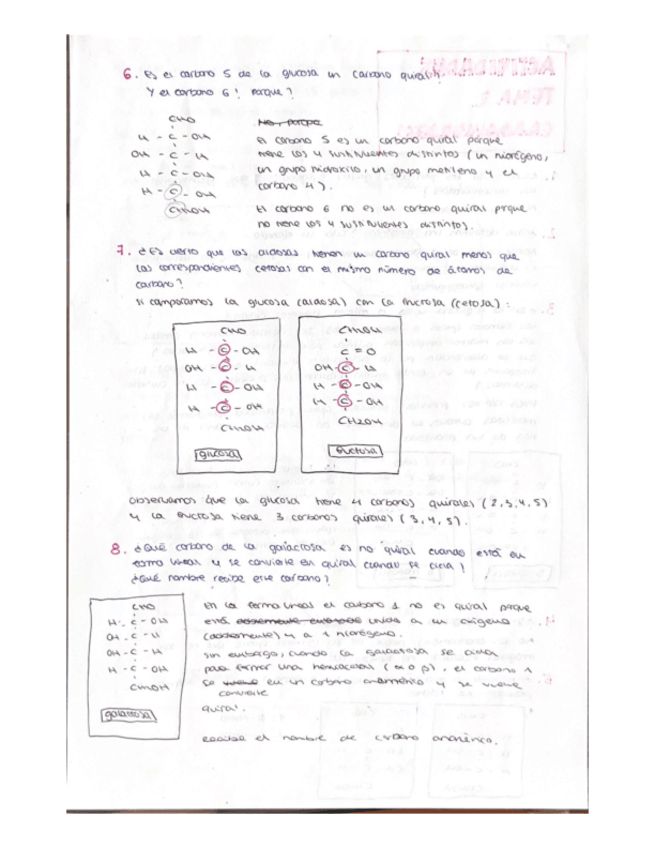 6. Es el carbono 5 de la glucosa un carbono quiral?
Y el carbono 6? Porque?
CHO
H - C - OH
OH - C - H
H - C - OH
H - C - OH
CH2OH
No, porque
El carbono 5 es un carbono quiral porque
tiene los 4 sustituyentes distintos (un hidrógeno,
un grupo hidroxilo, un grupo metileno y el
carbono 4).
El carbono 6 no es un carbono quiral porque
no tiene los 4 sustituyentes distintos).
7. ¿Es cierto que las aldosas tienen un carbono quiral menos que
las correspondientes cetosas con el mismo número de átomos de
carbono?
si comparamos la glucosa (aldosa) con la fructosa (cetosa):
CHO
H - C - OH
OH - C - H
H - C - OH
H - C - OH
CH2OH
glucosa
CH2OH
C = O
OH - C - H
H - C - OH
H - C - OH
CH2OH
fructosa
observamos que la glucosa tiene 4 carbonos quirales (2,3,4,5)
y la fructosa tiene 3 carbonos quirales (3,4,5).
8. ¿Qué carbono de la galactosa es no quiral cuando está en
forma lineal y se convierte en quiral cuando se cicla?
¿Qué nombre recibe ese carbono?
CHO
H - C - OH
OH - C - H
OH - C - H
H - C - OH
CH2OH
galactosa
En la forma lineal el carbono 1 no es quiral porque
está unido a un oxígeno
(doblemente) y a 1 hidrógeno.
sin embargo, cuando la galactosa se cicla
para formar una hemiacetal (α o β), el carbono 1
se vuelve en un carbono anomérico y se vuelve
convierte
quiral.
recibe el nombre de carbono anomérico.